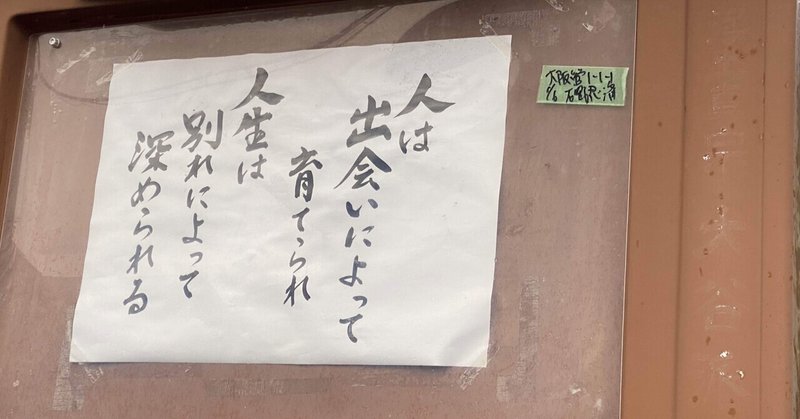 人は
出会いによって
育てられ
人生は
別れによって
深められる
1-1-1